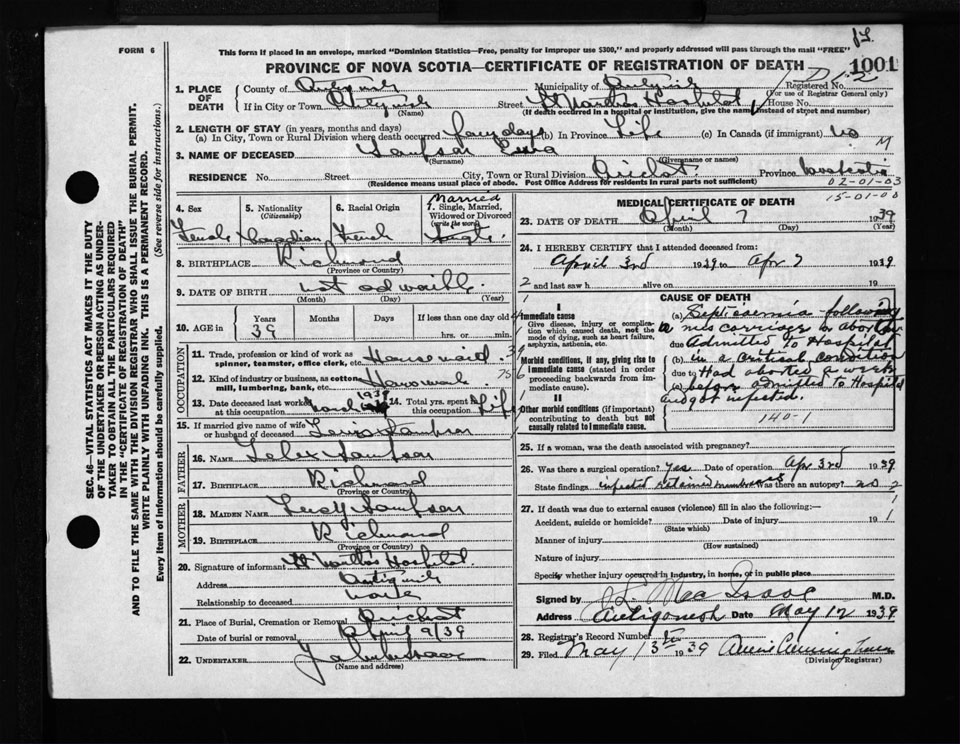 FORM 6
This form if placed in an envelope, marked "Dominion Statistics—Free, penalty for improper use $300," and properly addressed will pass through the mail "FREE"
PROVINCE OF NOVA SCOTIA—CERTIFICATE OF REGISTRATION OF DEATH
1001
Registered No.
(For use of Registrar General only)
1. PLACE OF DEATH
County of
Municipality of
If in City or Town
(Name)
Street St Marthas Hospital
House No.
(If death occurred in a hospital or institution, give the name instead of street and number)
2. LENGTH OF STAY (in years, months and days)
(a) In City, Town or Rural Division where death occurred four days (b) In Province Life (c) In Canada (if immigrant) no
3. NAME OF DECEASED Sampson
(Surname) (Given name or names)
M
RESIDENCE No. Street City, Town or Rural Division Arichat Province
(Residence means usual place of abode. Post Office Address for residents in rural parts not sufficient)
02-01-03
15-01-00
4. Sex Female
5. Nationality (Citizenship) Canadian
6. Racial Origin French
7. Single, Married, Widowed or Divorced (write the word) Married
Single
8. BIRTHPLACE Richmond
(Province or Country)
9. DATE OF BIRTH not
(Month) (Day) (Year)
10. AGE in Years Months Days If less than one day old
39
hrs. or min.
OCCUPATION
11. Trade, profession or kind of work as spinner, teamster, office clerk, etc. Housemaid
12. Kind of industry or business, as cotton mill, lumbering, bank, etc. Housework
13. Date deceased last worked at this occupation 1939
14. Total yrs. spent at this occupation Life
15. If married give name of wife or husband of deceased Sampson
FATHER
16. NAME Sampson
17. BIRTHPLACE Richmond
(Province or Country)
MOTHER
18. MAIDEN NAME Lucy Sampson
19. BIRTHPLACE Richmond
(Province or Country)
20. Signature of informant St Marthas Hospital
Address
Relationship to deceased none
21. Place of Burial, Cremation or Removal Arichat
Date of burial or removal April 9/39
22. UNDERTAKER
(Name and address)
MEDICAL CERTIFICATE OF DEATH
23. DATE OF DEATH April 7 1939
(Month) (Day) (Year)
24. I HEREBY CERTIFY that I attended deceased from:
April 3rd 1939 to Apr 7 1939
2 and last saw h alive on 19
CAUSE OF DEATH
I
Immediate cause
Give disease, injury or complication which caused death, not the mode of dying, such as heart failure, asphyxia, asthenia, etc.
Morbid conditions, if any, giving rise to immediate cause (stated in order proceeding backwards from immediate cause).
II
Other morbid conditions (if important) contributing to death but not causally related to immediate cause.
(a) Septicaemia following
a miscarriage or abortion
due Admitted to Hospital
(b) in a critical condition
due to Had aborted a week
(c) before admitted to Hospital
and got infected.
140-1
25. If a woman, was the death associated with pregnancy?
26. Was there a surgical operation? Yes Date of operation Apr 3rd 1939
State findings infected retained membranes Was there an autopsy? no
27. If death was due to external causes (violence) fill in also the following:—
Accident, suicide or homicide? Date of injury 19
(State which)
Manner of injury
(How sustained)
Nature of injury
Specify whether injury occurred in industry, in home, or in public place
Signed by M.D.
Address Antigonish Date May 12 1939
28. Registrar's Record Number
29. Filed May 13th 1939
(Division Registrar)
SEC. 46—VITAL STATISTICS ACT MAKES IT THE DUTY
OF THE UNDERTAKER OR PERSON ACTING AS UNDERTAKER TO OBTAIN ALL THE PARTICULARS REQUIRED
IN THE "CERTIFICATE OF REGISTRATION OF DEATH"
AND TO FILE THE SAME WITH THE DIVISION REGISTRAR WHO SHALL ISSUE THE BURIAL PERMIT.
WRITE PLAINLY WITH UNFADING INK. THIS IS A PERMANENT RECORD.
Every item of Information should be carefully supplied. (See reverse side for instructions.)